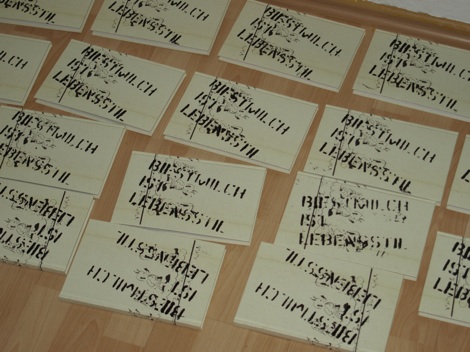 BIESTMILCH
IST
LEBENSSTIL
BIESTMILCH
IST
LEBENSSTIL
BIESTMILCH
IST
LEBENSSTIL
BIESTMILCH
IST
LEBENSSTIL
BIESTMILCH
IST
LEBENSSTIL
BIESTMILCH
IST
LEBENSSTIL
BIESTMILCH
IST
LEBENSSTIL
BIESTMILCH
IST
LEBENSSTIL
BIESTMILCH
IST
LEBENSSTIL
BIESTMILCH
IST
LEBENSSTIL
BIESTMILCH
IST
LEBENSSTIL
BIESTMILCH
IST
LEBENSSTIL